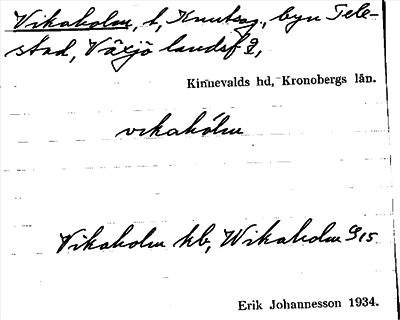 Vikaholm, t, Knutsg., byn Tele-
stad, Växjö landsf 2,
Kinnevalds hd, Kronobergs län.
vikahólm
Vikaholm kb, Wikaholm G15
Erik Johannesson 1934.